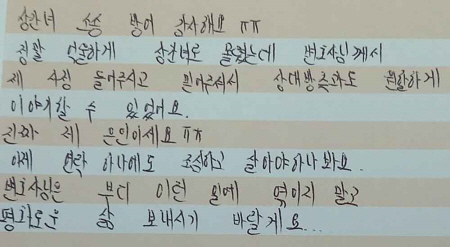 상간녀 소송 방어 감사해요 ㅠㅠ
정말 억울하게 상간녀로 몰렸는데 변호사님께서
제 사정 들어주시고 믿어주셔서 상대방측과도 원할하게
이야기할 수 있었어요.
진짜 제 은인이세요 ㅠㅠ
이제 연락 하나에도 조심하고 살아야하나봐요.
변호사님은 부디 이런 일에 엮이지 말고
평화로운 삶 보내시기 바랄게요...